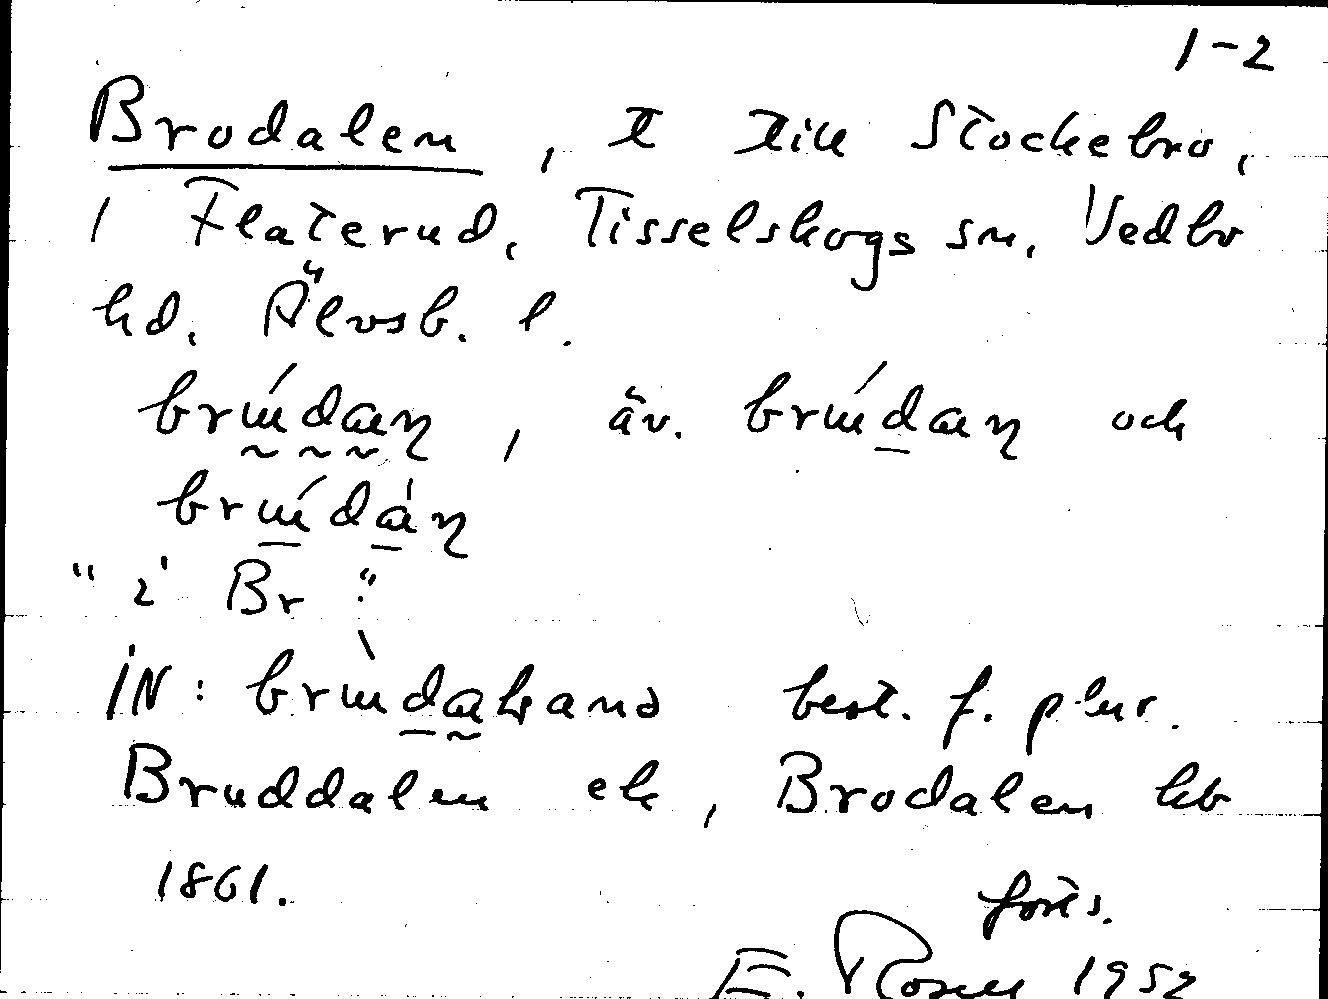 1-2
Brodalen, t till Stockebro,
1 Flaterud, Tisselskogs sn, Vedbo
hd, Älvsb. l.
brɯ́dan, äv. brɯ́dan och
brɯ́dàn
" i Br "
IN: brɯ̀daka̵nə best. f. plur.
Bruddalen ek, Brodalen kb
1861. forts.
E. Rosell 1952